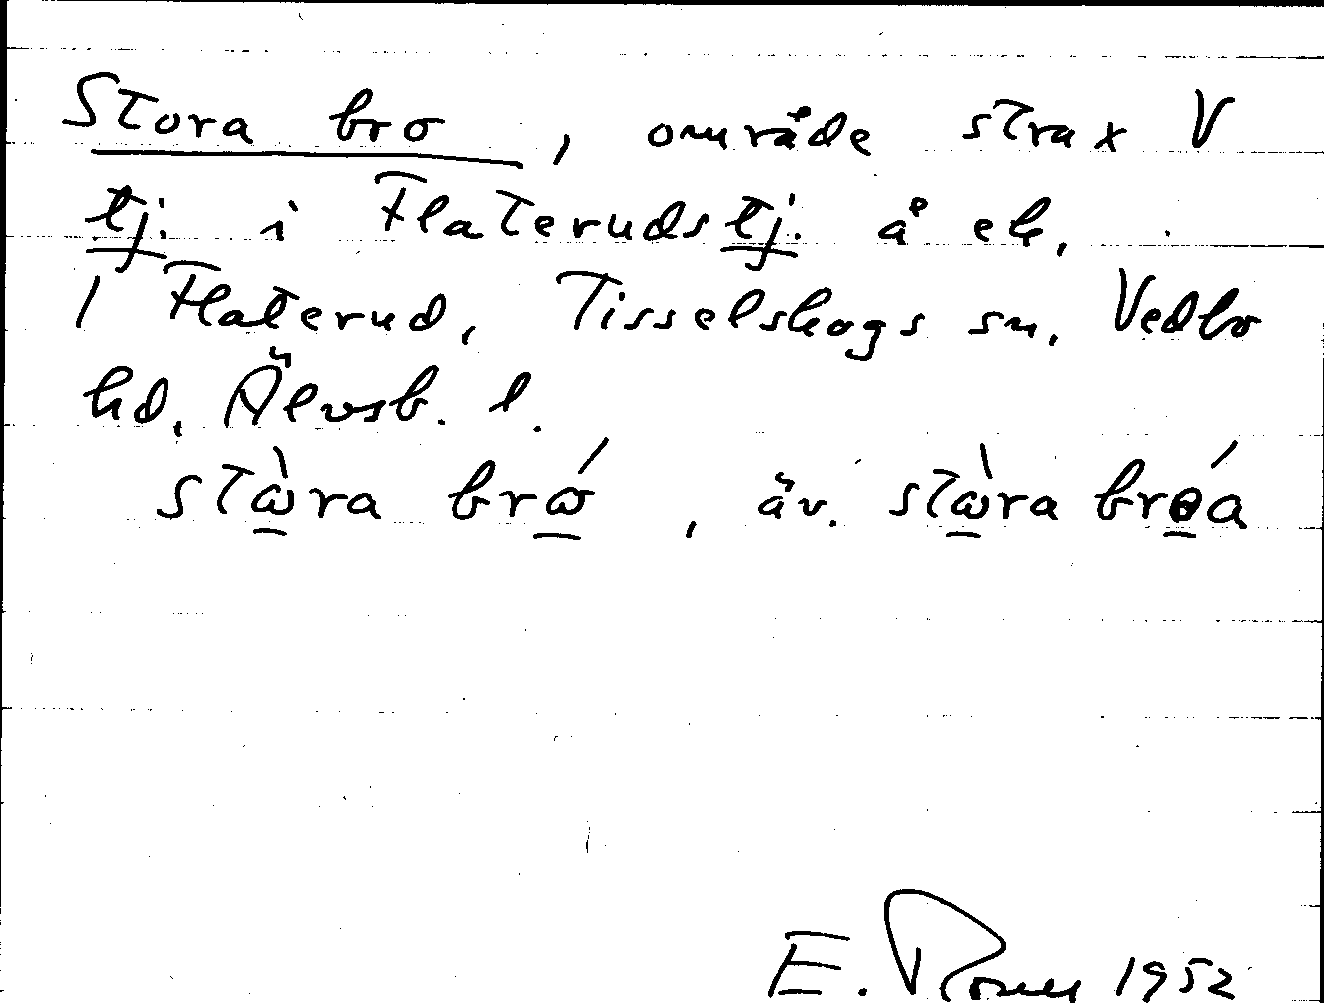 Stora bro, område strax V
tj. i Flaterudstj. å ek.
1 Flaterud, Tisselskogs sn. Vedbo
hd. Älvsb. l.
stὼra brώ, äv. stὼra brɵ́a
E. 1952